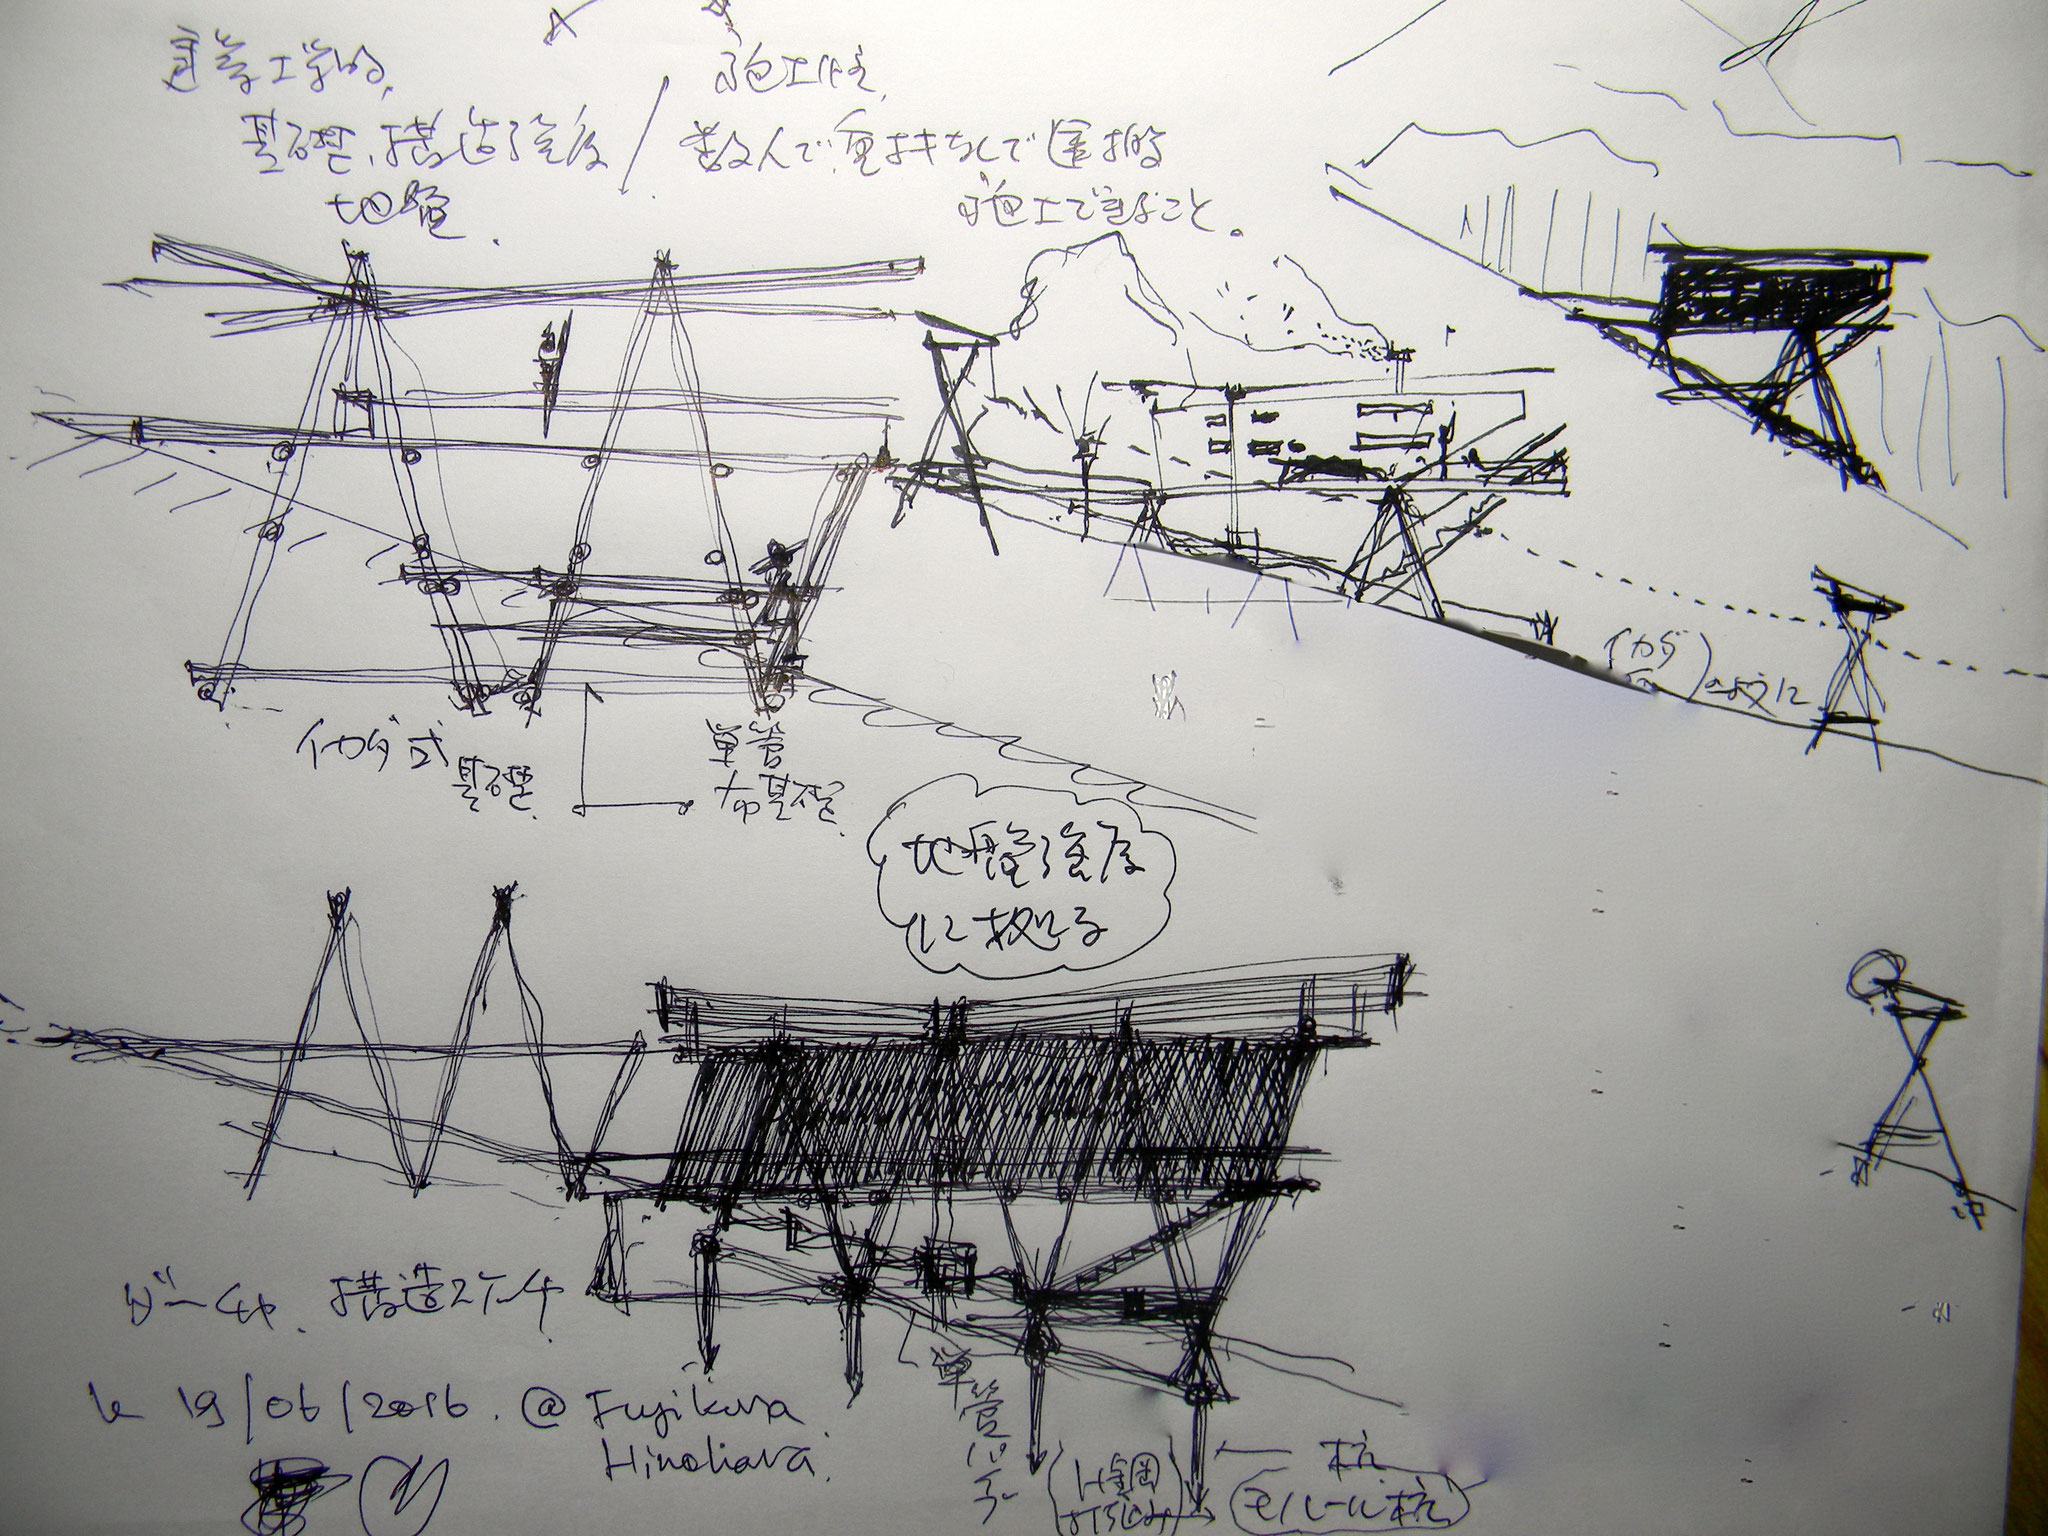 建築工学的、
基礎、構造強度
地盤.
施工性、
数人で、重機なしで運搬
施工できること。
イカダ
のように
イカダ式
基礎.
単管
布基礎.
地盤強度
に拠る
構造スケッチ
le 19/06/2016. @ Fujikura
Hinohara.
単管
H鋼
打込み
杭
モノレール杭